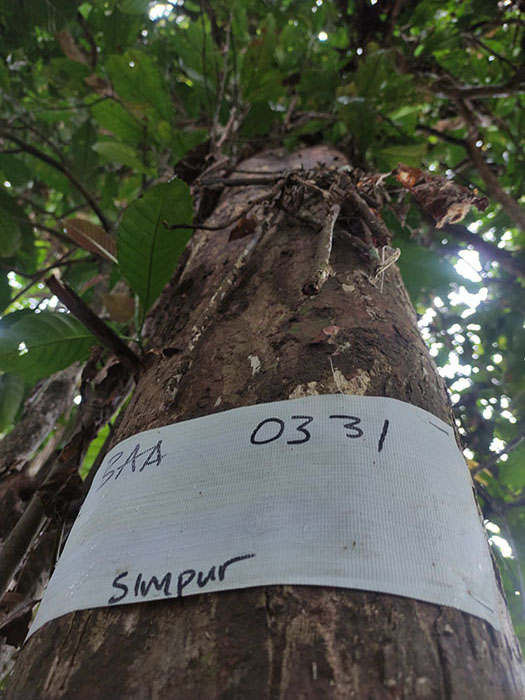 BAA 0331
Simpur